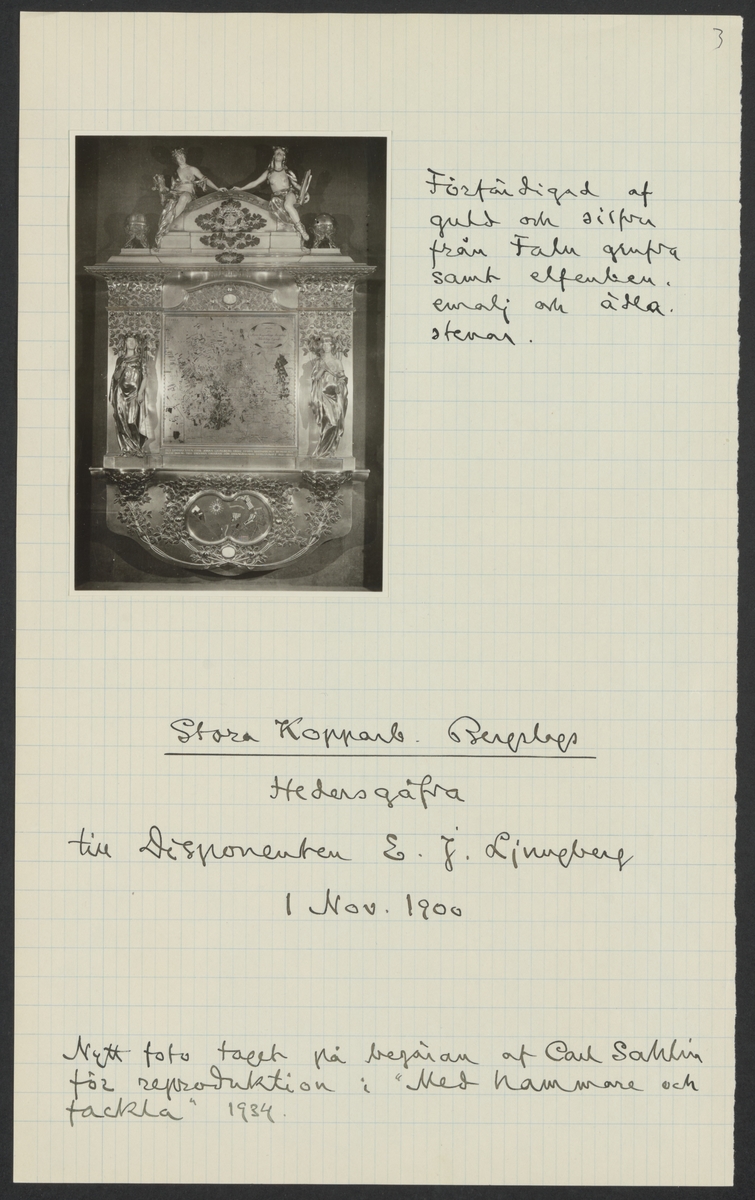 3
Förfärdigad af
guld och silfver
från Falu grufva
samt elfenben,
emalj och ädla
stenar.
Stora Kopparb. Bergslags
Hedersgåfva
till Disponenten E. J. Ljungberg
1 Nov. 1900
Nytt foto taget på begäran af Carl Sahlin
för reproduktion i "Med hammare och
fackla" 1934.